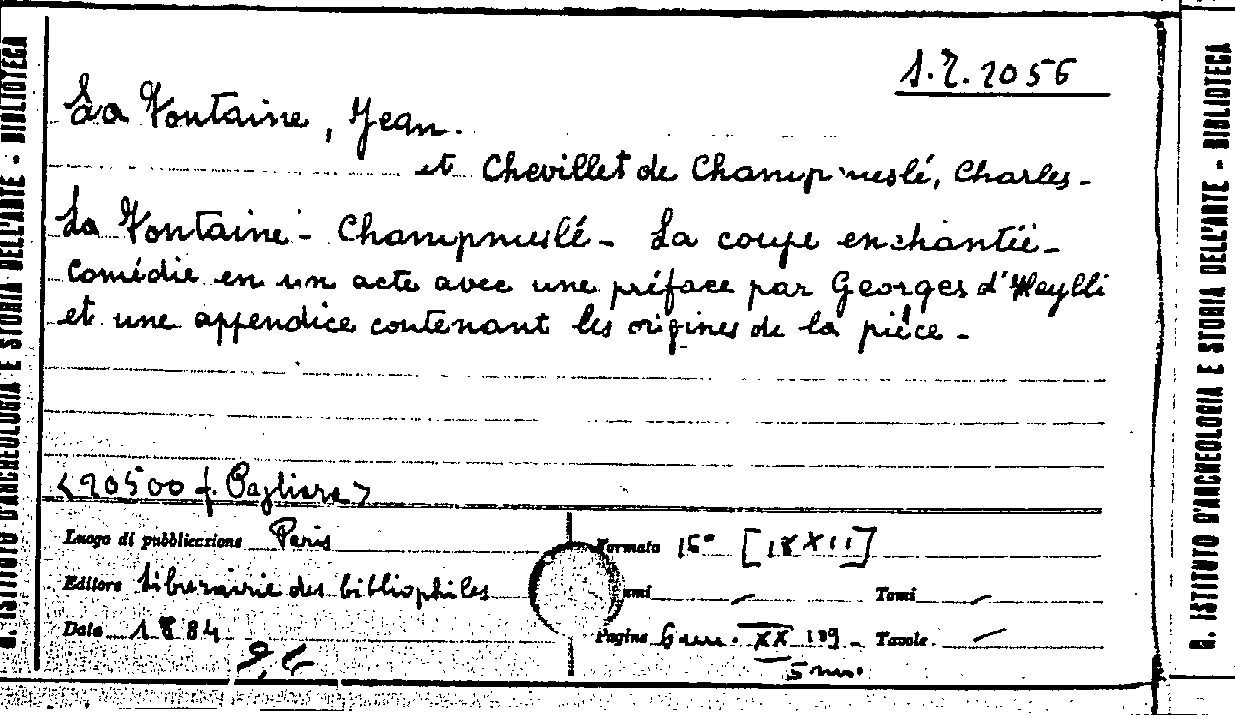 1.Z.2056
La Fontaine, Jean.
et Chevillet de Champmeslé, Charles-
La Fontaine - Champmeslé - La coupe enchantée-
Comédie en un acte avec une préface par Georges d'Heylli
et une appendice contenant les origines de la pièce -
<20500 f. Pagliara>
Luogo di pubblicazione Paris
Formato 16° [18XII]
Editore Librairie des bibliophiles
Tomi
Data 1884
Pagine 6 nn. XX 109 - Tavole
5 nn.
R. ISTITUTO D'ARCHEOLOGIA E STORIA DELL'ARTE - BIBLIOTECA
R. ISTITUTO D'ARCHEOLOGIA E STORIA DELL'ARTE - BIBLIOTECA